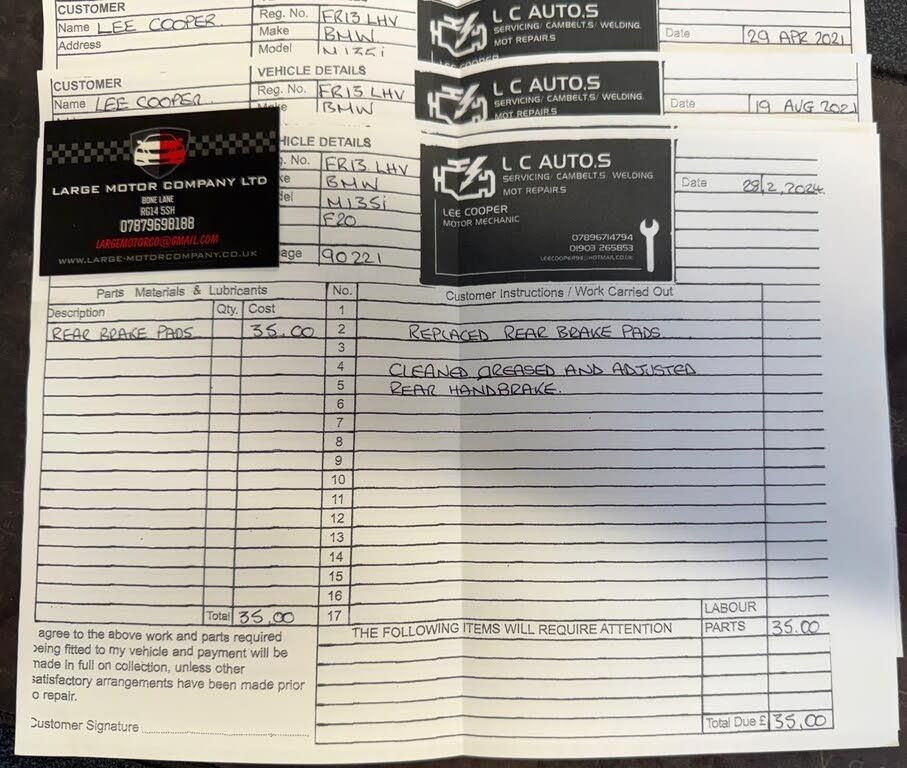 CUSTOMER
Name LEE COOPER
Address
Reg. No. FR13 LHV
Make BMW
Model M135i
L C AUTO.S
SERVICING/ CAMBELT.S/ WELDING.
MOT REPAIR.S
LEE COOPER
Date 29 APR 2021
CUSTOMER
Name LEE COOPER
VEHICLE DETAILS
Reg. No. FR13 LHV
Make BMW
L C AUTO.S
SERVICING/ CAMBELT.S/ WELDING.
MOT REPAIR.S
Date 19 AUG 2021
LARGE MOTOR COMPANY LTD
BONE LANE
RG14 5SH
07879698188
LARGEMOTORCO@GMAIL.COM
WWW.LARGE-MOTORCOMPANY.CO.UK
HICLE DETAILS
g. No. FR13 LHV
ke BMW
del M135i
F20
age 90221
L C AUTO.S
SERVICING/ CAMBELT.S/ WELDING.
MOT REPAIR.S
LEE COOPER
MOTOR MECHANIC
07896714794
01903 265853
LEECOOPER98@HOTMAIL.CO.UK
Date 28,2,2024
Parts Materials & Lubricants No. Customer Instructions / Work Carried Out
Description Qty. Cost 1
REAR BRAKE PADS 35.00 2 REPLACED REAR BRAKE PADS
3
4 CLEANED GREASED AND ADJUSTED
5 REAR HANDBRAKE.
6
7
8
9
10
11
12
13
14
15
16
Total 35,00 17 LABOUR
THE FOLLOWING ITEMS WILL REQUIRE ATTENTION PARTS 35.00
agree to the above work and parts required
being fitted to my vehicle and payment will be
made in full on collection, unless other
satisfactory arrangements have been made prior
o repair.
Customer Signature
Total Due £ 35,00